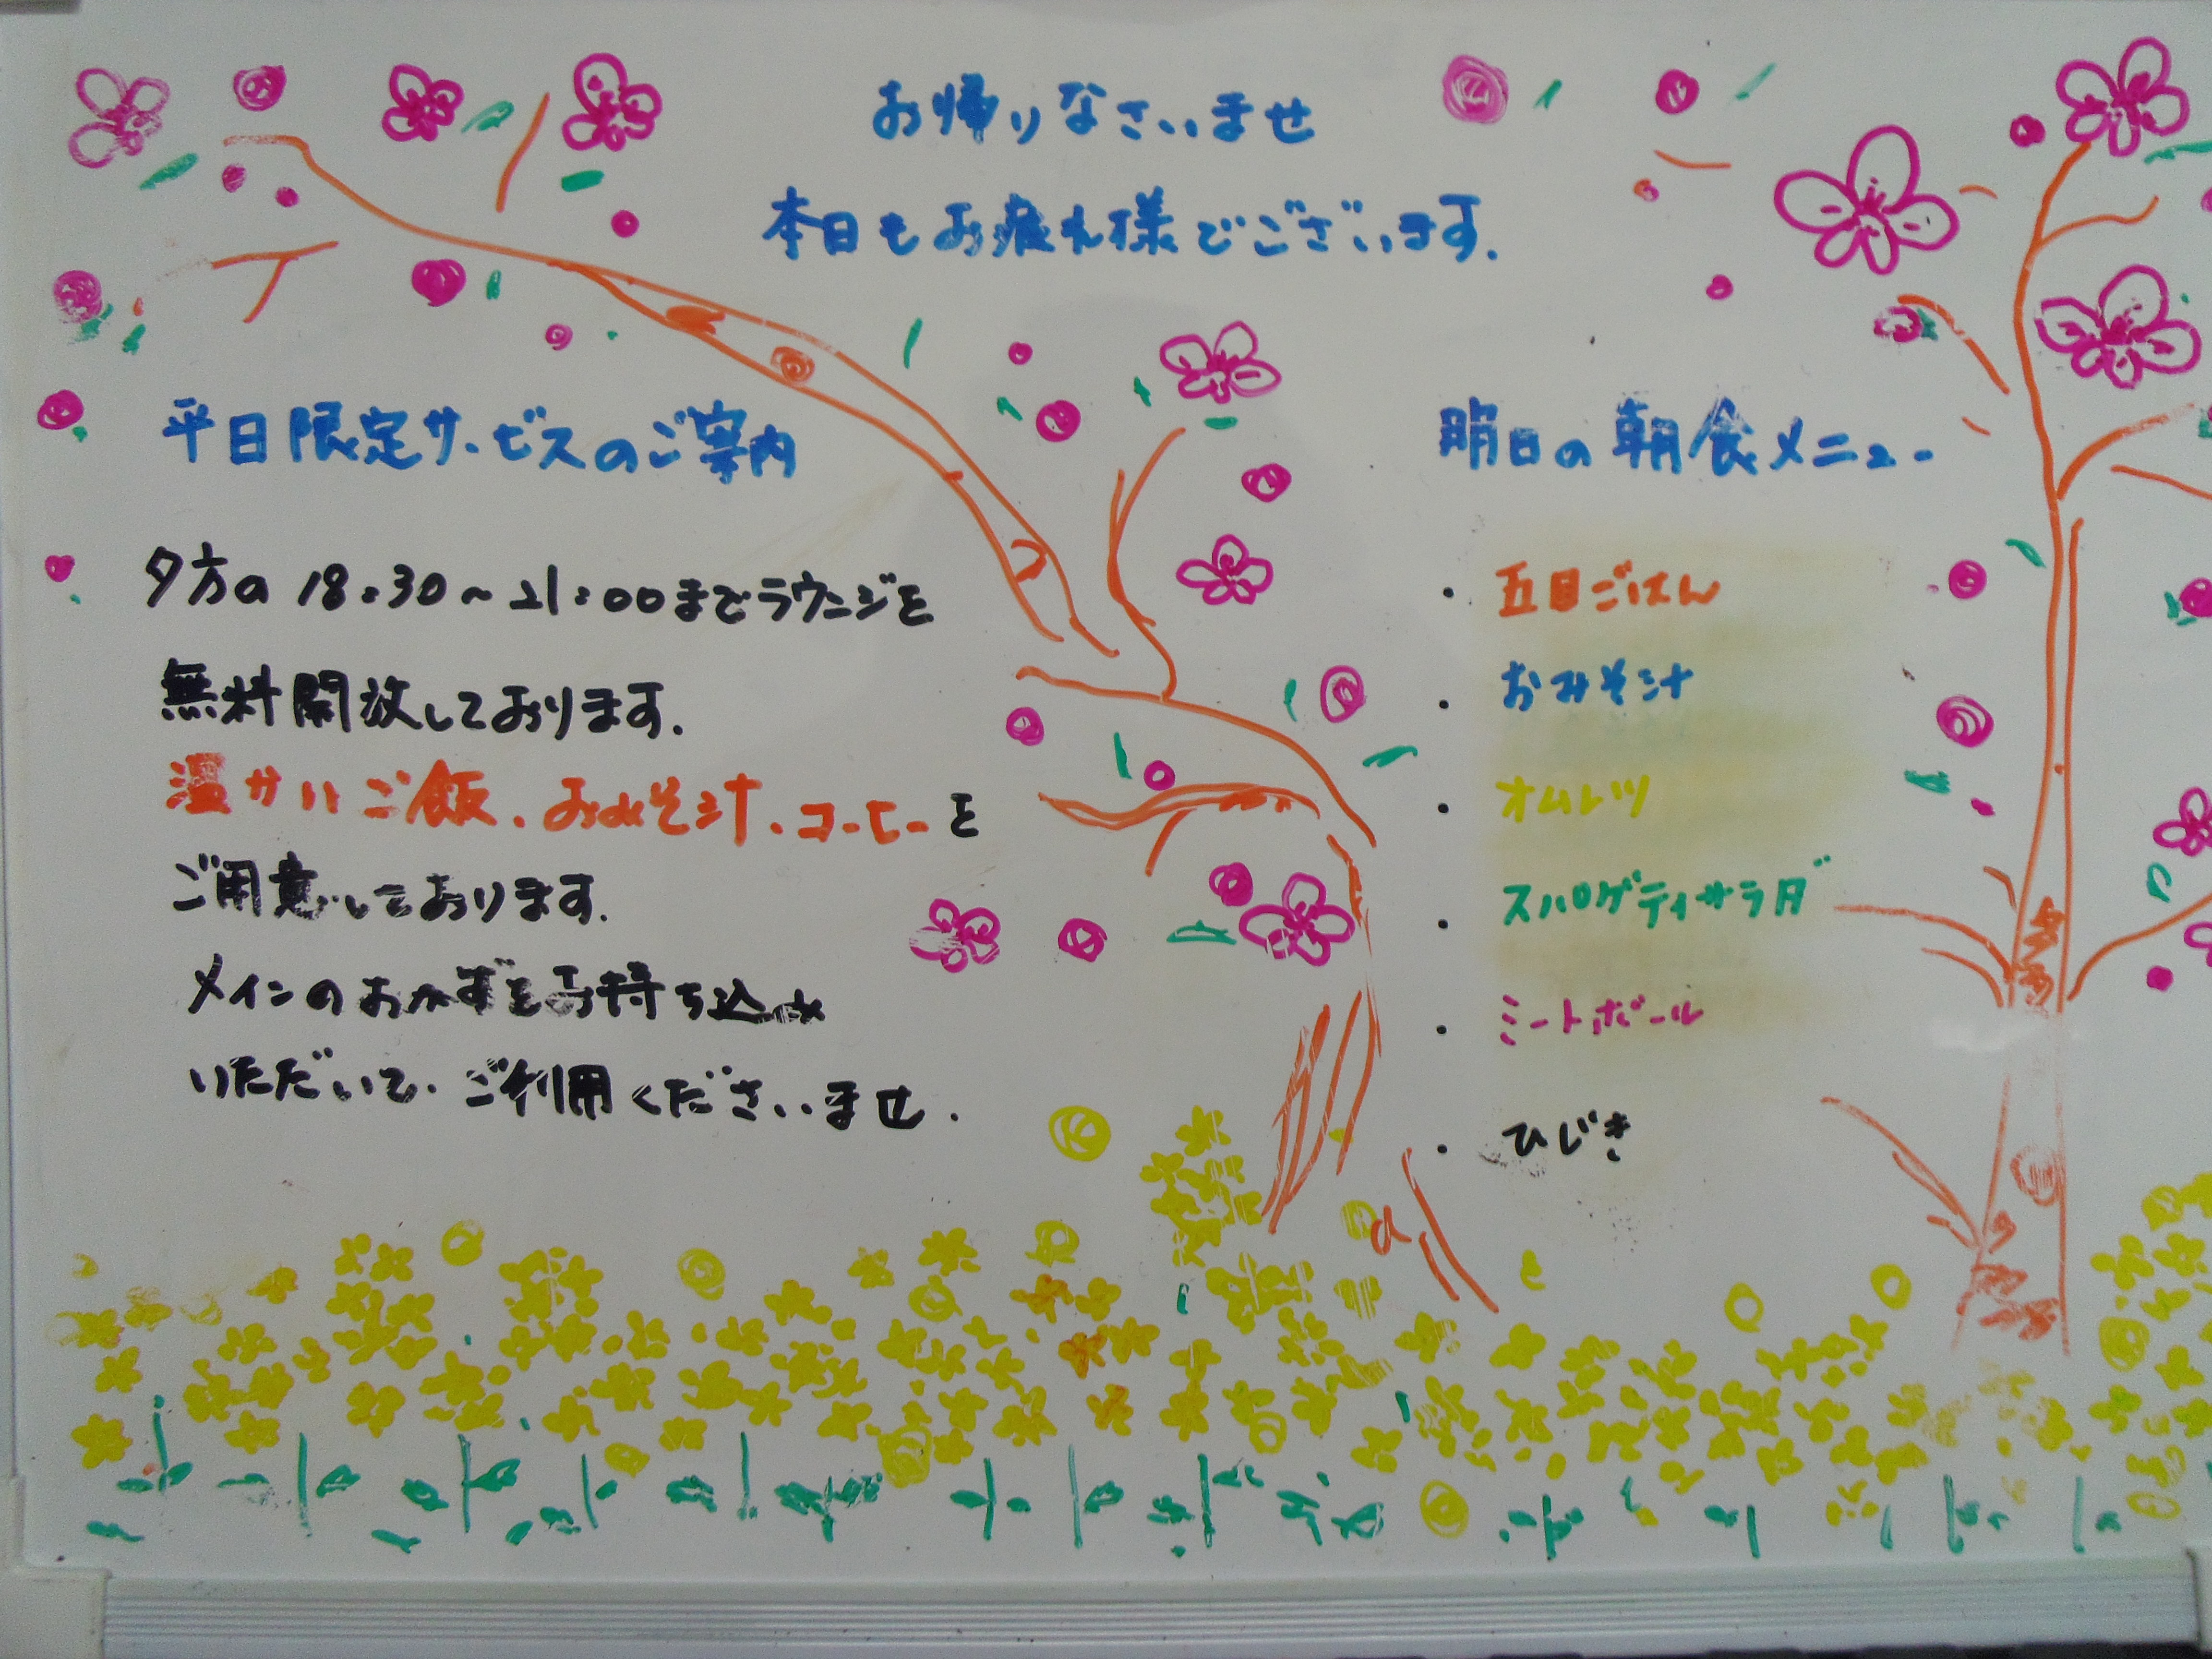 お帰りなさいませ
本日もお疲れ様でございます.
平日限定サービスのご案内
夕方の 18:30~21:00までラウンジを
無料開放しております.
温かいご飯.おみそ汁.コーヒーを
ご用意しております.
メインのおかずをお持ち込み
いただいて.ご利用くださいませ.
明日の朝食メニュー
・五目ごはん
・おみそ汁
・オムレツ
・スパゲティサラダ
・ミートボール
・ひじき